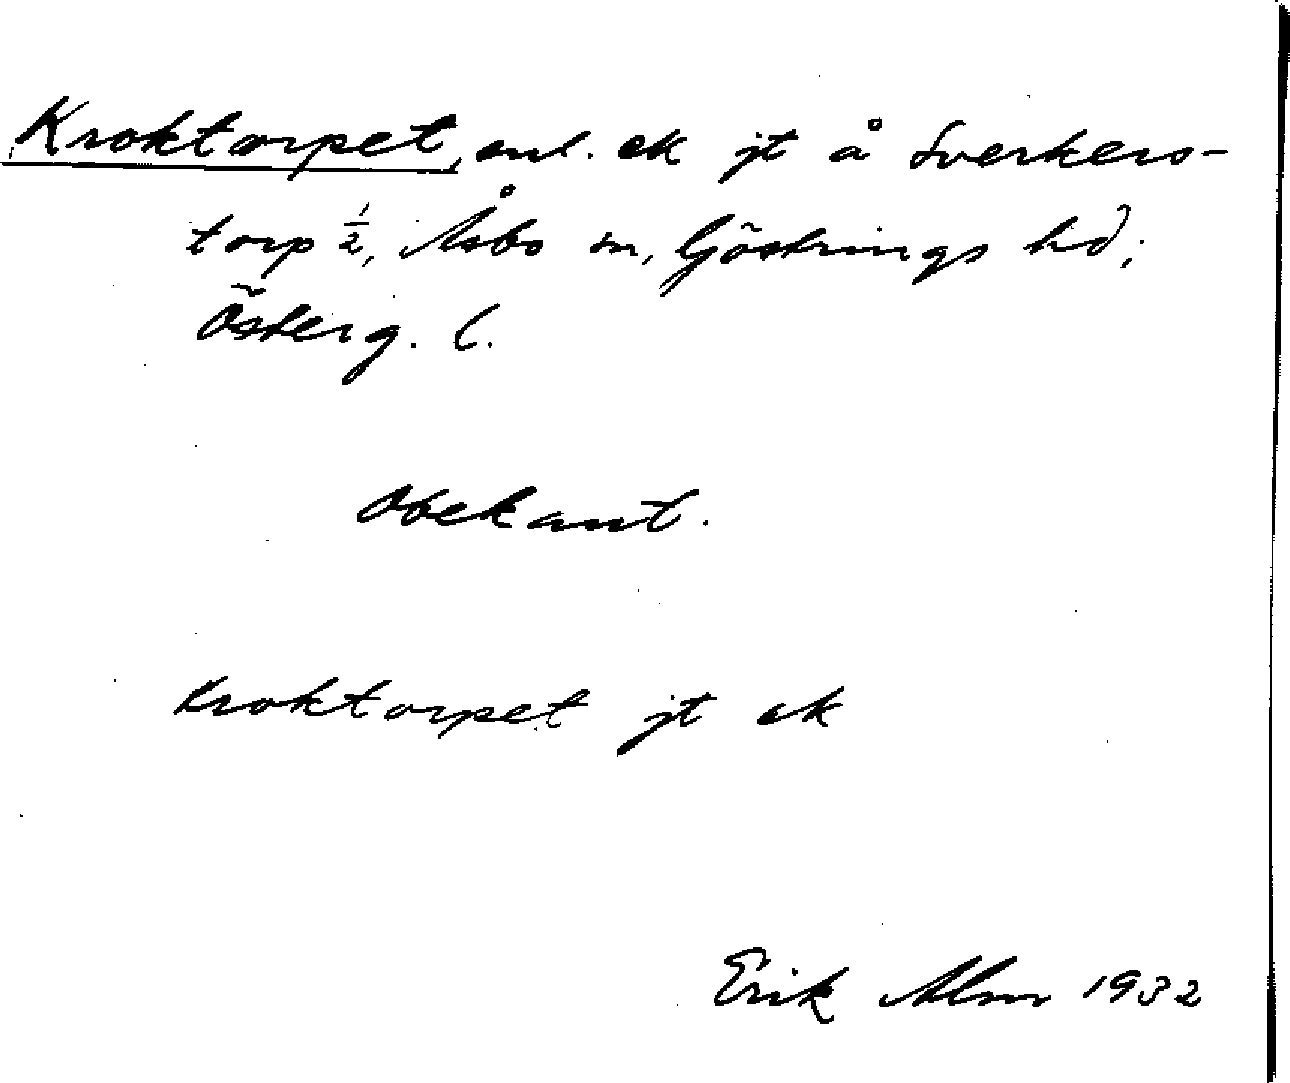 Kroktorpet, enl. ek jt å Sverkers-
torp 1/2, Åsbo sn, Göstrings hd,
Österg. l.
Obekant.
Kroktorpet jt ek
Erik Alm 1932